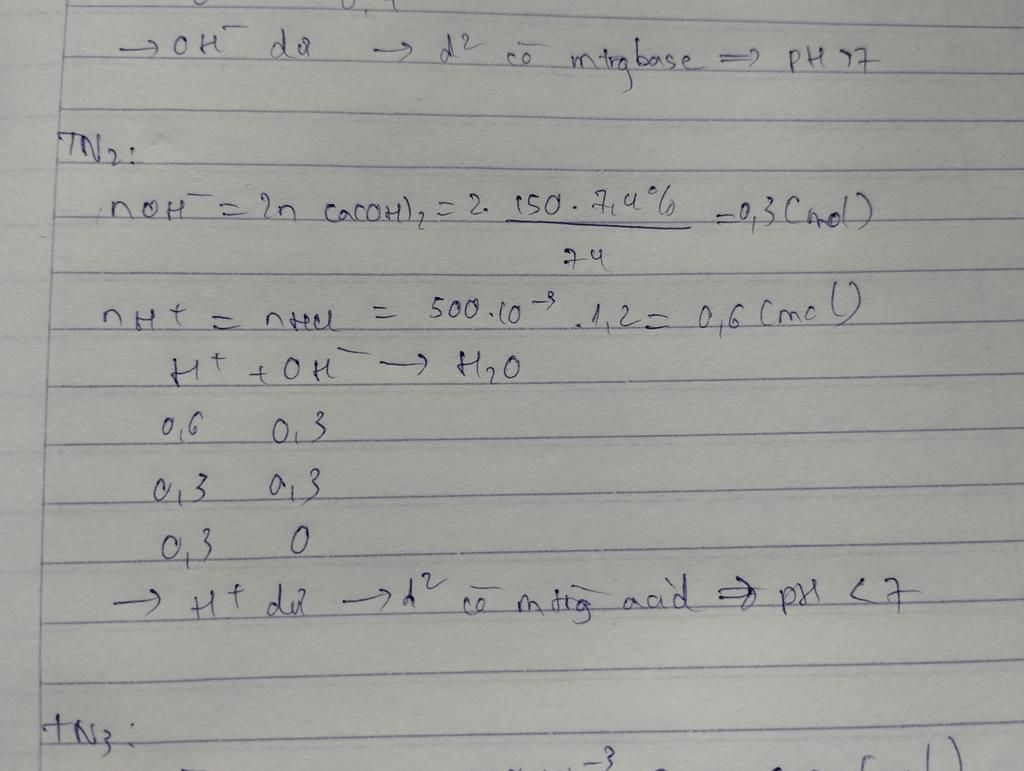 → OH⁻ dư → d² có mtrg base ⇒ pH >7
TN₂:
nOH⁻ = 2n Ca(OH)₂ = 2. 150 . 7,4% / 74 = 0,3 (mol)
nH⁺ = nHCl = 500.10⁻³ .1,2 = 0,6 (mol)
H⁺ + OH⁻ → H₂O
0,6 0,3
0,3 0,3
0,3 0
→ H⁺ dư → d² có mtrg acid ⇒ pH < 7
TN₃: